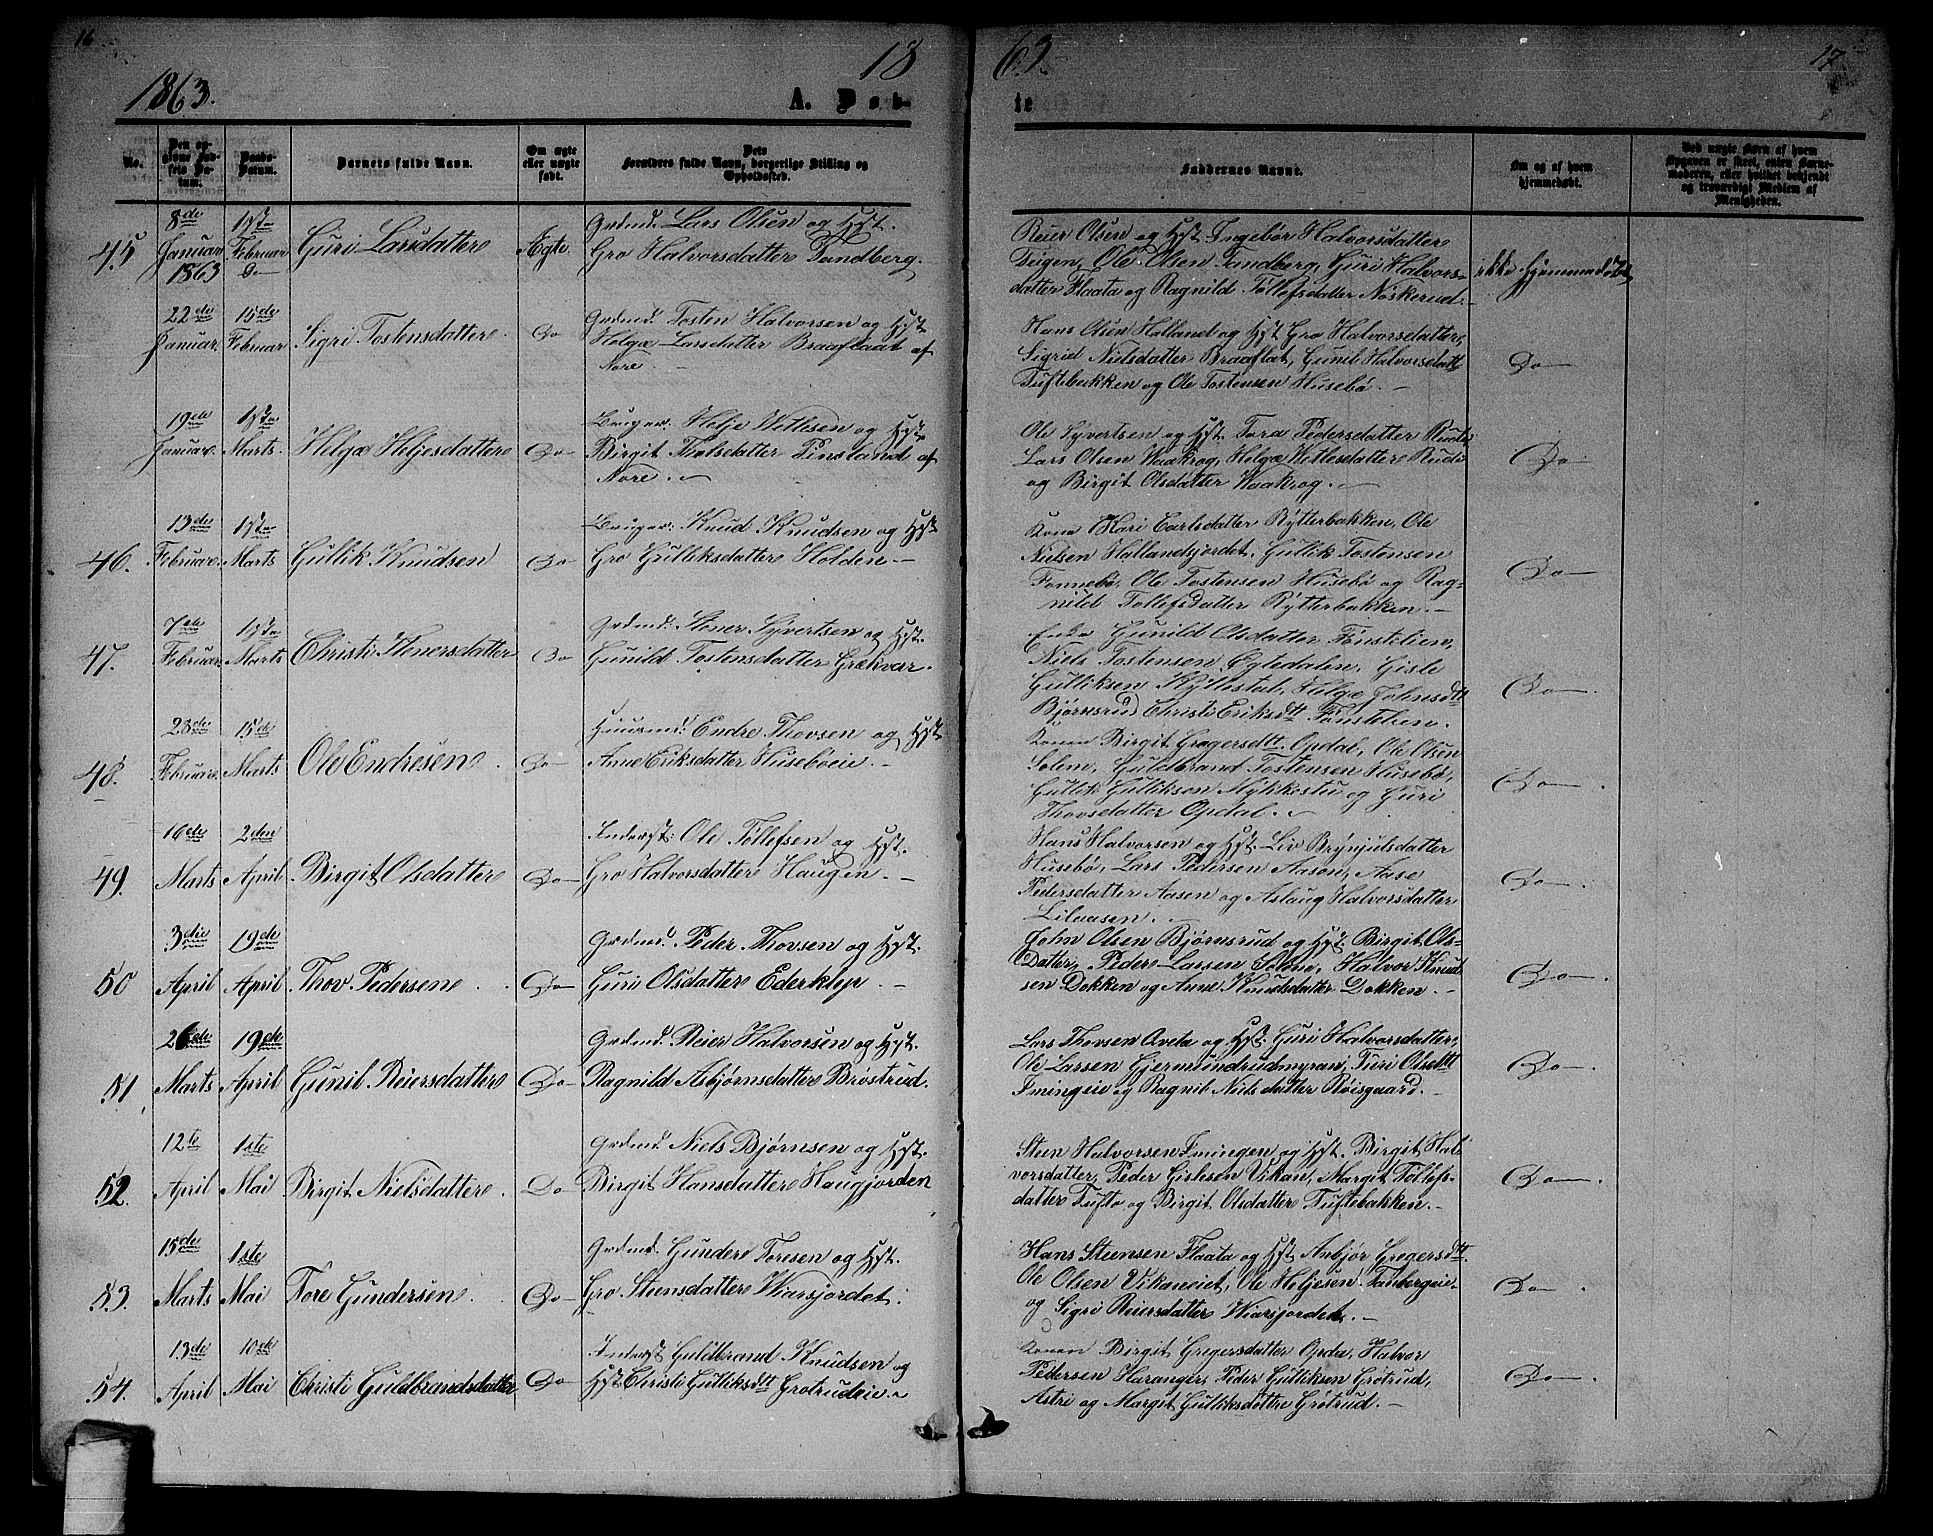 16
1863.
18
63.
17
A. Døb-
te
No.
Den op-
givne Fød-
sels Da-
tum.
Daabs-
Datum.
Barnets fulde Navn.
Om ægte
eller uægte
født.
Dets
Forældres fulde Navn, borgerlige Stilling og
Opholdssted.
Faddernes Navne.
Om og af hvem
hjemmedøbt.
Ved uægte Børn af hvem
Opgaven er skeet, enten Barne-
moderen, eller hvilket bekjendt
og troværdigt Medlem af
Menigheden.
45
8de
Januar
1863
1ste
Februar
Do
Guri Larsdatter
Ægte
Grdmd. Lars Olsen og Hst.
Gro Halvorsdatter Tandberg.
Reier Olsen og Hst Ingebør Halvorsdatter
Teigen, Ole Olsen Tandberg, Guri Halvors-
datter Flaata og Ragnild Tollefsdatter Noskerud.
ikke hjemmedøbt
22de
Januar.
15de
Februar
Sigri Tostensdatter
Do
Grdmd. Tosten Halvorsen og Hst
Helga Larsdatter Braaflaat af
Nore.
Hans Olsen Holland og Hst Gro Halvorsdatter,
Sigrid Nielsdatter Braaflat, Gunil Halvorsdatt
Tuftebakken og Ole Tostensen Husebø.
Do
19de
Januar.
1ste
Marts.
Helga Heljesdatter
Do
Bruger. Helje Wetlesen og Hst
Birgit Nielsdatter Pinsland af
Nore.
Ole Syvertsen og Hst. Tora Pedersdatter Rudi
Lars Olsen Waakrog, Helga Wetlesdatter Rudi
og Birgit Olsdatter Waakrog.
Do
46.
13de
Februar.
1ste
Marts
Gullik Knudsen
Do
Bruger. Knud Knudsen og Hst
Gro Gulliksdatter Holden
Kona Kari Earlsdatter Rytterbakken, Ole
Nielsen Hallandsjordet, Gullik Tostensen
Fonnebø, Ole Tostensen Husebø og Rag-
nild Tollefsdatter Rytterbakken.
Do
47.
7de
Februar
1ste
Marts
Christi Stenersdatter
Do
Grdmd. Stener Syvertsen og Hst.
Gunild Tostensdatter Grækvar.
Enke Gunild Olsdatter Frustelien,
Niels Tostensen Øgtedalen, Gisle
Gulliksen Kyllestal, Helga Johnsdtt
Bjørnsrud Christi Eriksdtt Frustelien.
Do.
48.
28de
Februar.
15de
Marts
Ole Endresen
Do
Huusmd. Endre Thovsen og Hst
Anne Eriksdatter Husebøeie.
Konen Birgit Gregersdtt. Opdal, Ole Olsen
Solem, Guldbrand Tostensen Husebø,
Gullik Gulliksen Mykkestu og Guri
Thovsdatter Opdal.
Do.
49.
16de
Marts
2den
April
Birgit Olsdatter
Do
Inderst. Ole Tollefsen og Hst.
Gro Halvorsdatter Haugen.
Hans Halvorsen og Hst. Liv Brynjulsdatter
Husebø, Lars Pedersen Aasen, Aase
Pedersdatter Aasen og Aslaug Halvorsdatter
Lilaasen.
Do.
50
3die
April
19de
April
Thov Pedersen
Do
Grdmd. Peder Thovsen og Hst.
Guri Olsdatter Ederklep.
John Olsen Bjørnsrud og Hst. Birgit Ols-
datter, Peder Larsen Solem, Halvor Knud
sen Dokken og Anne Knudsdatter Dokken.
Do.
51
26de
Marts
19de
April
Gunil Reiersdatter
Do
Grdmd. Reier Halvorsen og Hst.
Ragnild Asbjørnsdatter Brøstrud.
Lars Thovsen Qveta og Hst. Guri Halvorsdatter,
Ole Larsen Gjermundrudmyran, Turi Olsdtt
Imingeie og Ragnil Nielsdatter Røisgaard.
Do.
52
12te
April
1ste
Mai
Birgit Nielsdatter.
Do
Grdmd. Niels Bjørnsen og Hst.
Birgit Hansdatter Haugjorden
Steen Halvorsen Imingen og Hst. Birgit Hal-
vorsdatter, Peder Gislesen Vikan, Margit Tollefs-
datter Tufto og Birgit Olsdatter Tuftebakken.
Do.
53.
15de
Marts
1ste
Mai
Tore Gundersen.
Do
Grdmd. Gunder Toresen og Hst.
Gro Steensdatter Wiarsjordet.
Hans Steensen Flaata og Hst Anbjør Gregersdtt.
Ole Olsen Vikaneiet, Ole Heljesen Tanbergeie
og Sigri Reiersdatter Wiarsjordet.
Do.
54.
13de
April
10de
Mai
Christi Guldbrandsdatter
Do
Inderst Guldbrand Knudsen og
Hst Christi Gulliksdtt Grøtrudeie.
Konen Birgit Gregersdatter Opda, Halvor
Pedersen Haranger, Peder Gulliksen Grøtrud,
Astri og Margit Gulliksdattre Grøtrud.
Do.